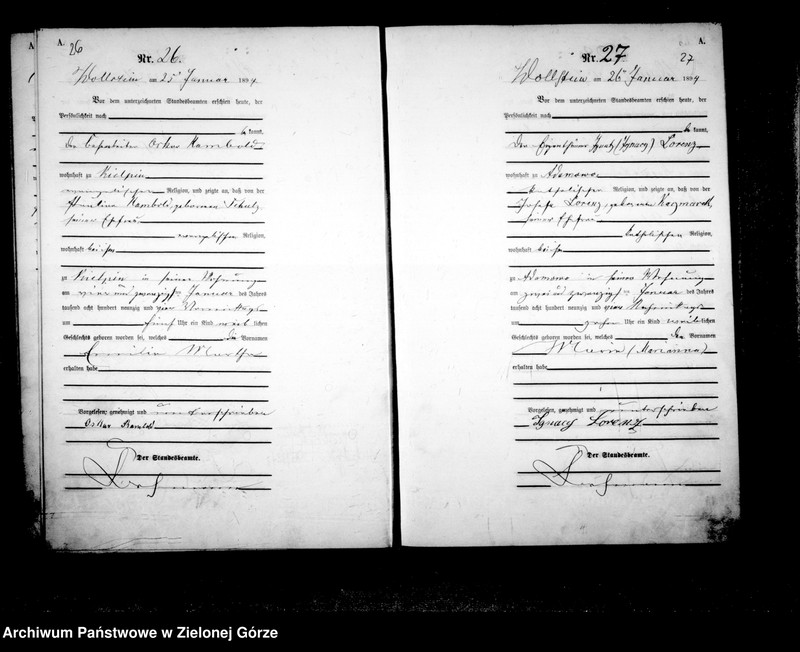 A.
26
Nr. 26.
Wollstein am 25 Januar 1894
Vor dem unterzeichneten Standesbeamten erschien heute, der
Persönlichkeit nach
be kannt,
der Oskar
wohnhaft zu Kielpin
evangelischer Religion, und zeigte an, daß von der
geborenen Schulz
seiner Ehefrau
evangelischer Religion,
wohnhaft bei ihm
zu Kielpin in seiner Wohnung
am vier und zwanzigsten Januar des Jahres
tausend acht hundert neunzig und vier Vormittags
um fünf Uhr ein Kind weiblichen
Geschlechts geboren worden sei, welches die Vornamen
Martha
erhalten habe
Vorgelesen, genehmigt und unterschrieben
Oskar
Der Standesbeamte.
A.
27
Nr. 27
Wollstein am 26 Januar 1894
Vor dem unterzeichneten Standesbeamten erschien heute, der
Persönlichkeit nach
be kannt,
der Eigenthümer Ignatz (Ignacy) Lorenz
wohnhaft zu Adamowo
katholischer Religion, und zeigte an, daß von der
Josefa Lorenz, geborenen Kaczmarek
seiner Ehefrau
katholischer Religion,
wohnhaft bei ihm
zu Adamowo in seiner Wohnung
am zwei und zwanzigsten Januar des Jahres
tausend acht hundert neunzig und vier Nachmittags
um Uhr ein Kind weiblichen
Geschlechts geboren worden sei, welches den Vornamen
(Marianna)
erhalten habe
Vorgelesen, genehmigt und unterschrieben
Ignacy Lorenz
Der Standesbeamte.
Archiwum Państwowe w Zielonej Górze